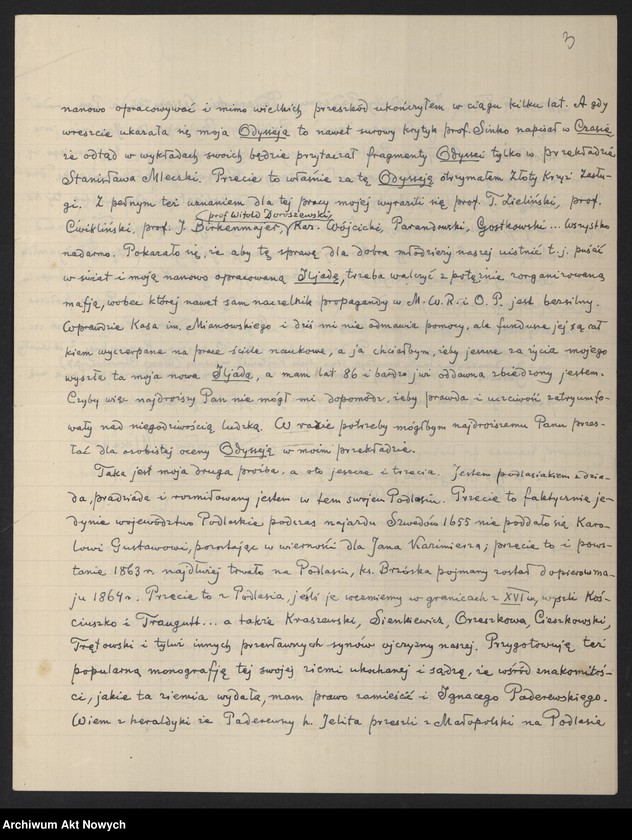 3
nanowo opracowywać i mimo wielkich przeszkód ukończyłem w ciągu kilku lat. A gdy
wreszcie ukazała się moja Odysseja to nawet surowy krytyk prof. Sinko napisał w Czasie,
że odtąd w wykładach swoich będzie przytaczał fragmenty Odyssei tylko w przekładzie
Stanisława Mleczki. Przecie to właśnie za tę Odysseję otrzymałem Złoty Krzyż Zasłu-
gi. Z pełnym też uznaniem dla tej pracy mojej wyrazili się prof. T. Zieliński, prof.
prof Witold Doroszewski
Ćwikliński, prof. J. Birkenmajer, Kaz. Wójcicki, Parandowski, Gostkowski... Wszystko
nadarmo. Pokazało się, że aby tę sprawę dla dobra młodzieży naszej uiścić t.j. puścić
w świat i moją nanowo opracowaną Iljadę, trzeba walczyć z potężnie zorganizowaną
mafją, wobec której nawet sam naczelnik propagandy w M. W. R. i O. P. jest bezsilny.
Wprawdzie Kasa im. Mianowskiego i dziś mi nie odmawia pomocy, ale fundusze jej są cał
kiem wyczerpane na prace ściśle naukowe, a ja chciałbym, żeby jeszcze za życia mojego
wyszła ta moja nowa Iljada, a mam lat 86 i bardzo już oddawna zbiedzony jestem.
Czyby więc najdroższy Pan nie mógł mi dopomódz, żeby prawda i uczciwość zatryumfo-
wały nad niegodziwością ludzką. W razie potrzeby mógłbym najdroższemu Panu przes-
łać dla osobistej oceny Odysseję w moim przekładzie.
Taka jest moja druga prośba, a oto jeszcze i trzecia. Jestem podlasiakiem z dzia-
da, pradziada i rozmiłowany jestem w tem swojem Podlasiu. Przecie to faktycznie je-
dynie województwo Podlaskie podczas najazdu Szwedów 1655 nie poddało się Karo-
lowi Gustawowi, pozostając w wierności dla Jana Kazimierza; przecie to i pows-
tanie 1863 r. najdłużej trwało na Podlasiu, ks. Brzóska pojmany został dopiero w ma-
ju 1864 r. Przecie to z Podlasia, jeśli je weźmiemy w granicach z XVI w, wyszli Koś-
ciuszko i Traugutt... a także Kraszewski, Sienkiewicz, Orzeszkowa, Cieszkowski,
Trętowski i tylu innych przesławnych synów ojczyzny naszej. Przygotowuję też
popularną monografję tej swojej ziemi ukochanej i sądzę, że wśród znakomitoś-
ci, jakie ta ziemia wydała, mam prawo zamieścić i Ignacego Paderewskiego.
Wiem z heraldyki że Paderewscy h. Jelita przeszli z Małopolski na Podlasie
Archiwum Akt Nowych